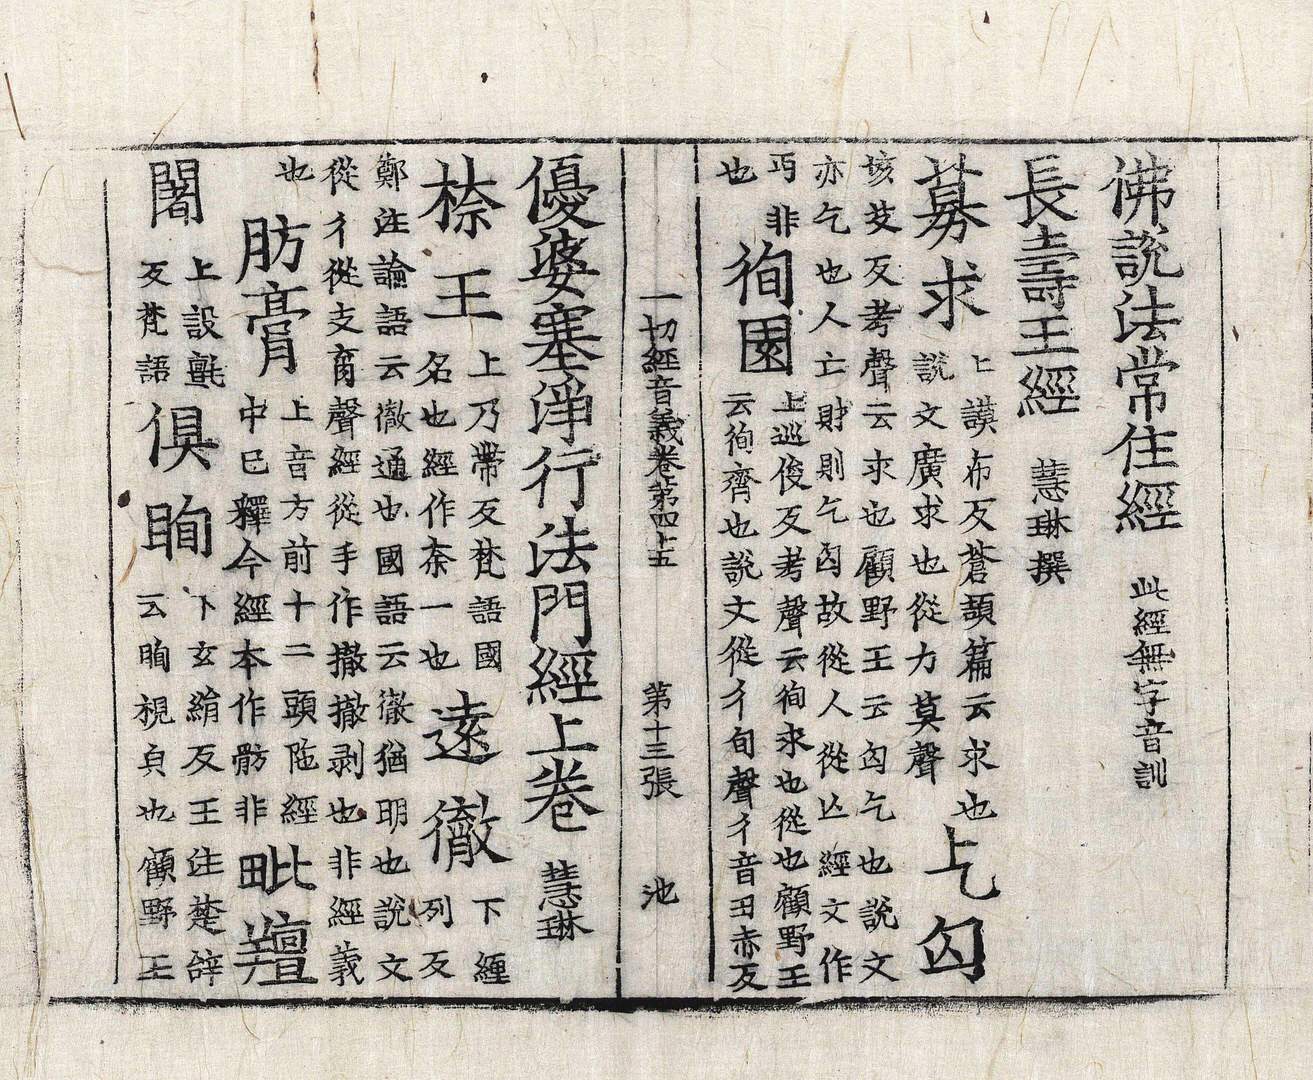 佛說法常住經 此經無字音訓
長壽王經 慧琳撰
募求 上謨布反蒼頡篇云求也
說文廣求也從力莫聲
乞匃
垓艾反考聲云求也顧野王云匃乞也說文
亦乞也人亡財則乞匃故從人從亾經文作
丐非
也
徇園 上巡俊反考聲云徇求也從也顧野王
云徇齊也說文從彳旬聲彳音丑赤反
一切經音義卷第四十五 第十三張 池
優婆塞淨行法門經上卷 慧琳
㮈王 上乃帶反梵語國
名也經作柰一也
遠徹 下纏
列反
鄭注論語云徹通也國語云徹猶明也說文
從彳從支育聲經從手作撤撤剥也非經義
也
肪膏 上音方前十二頭陁經
中已釋今經本作骯非
毗羶
闍 上設氈
反梵語
俱眴 下玄絹反王注楚辭
云眴視皃也顧野王